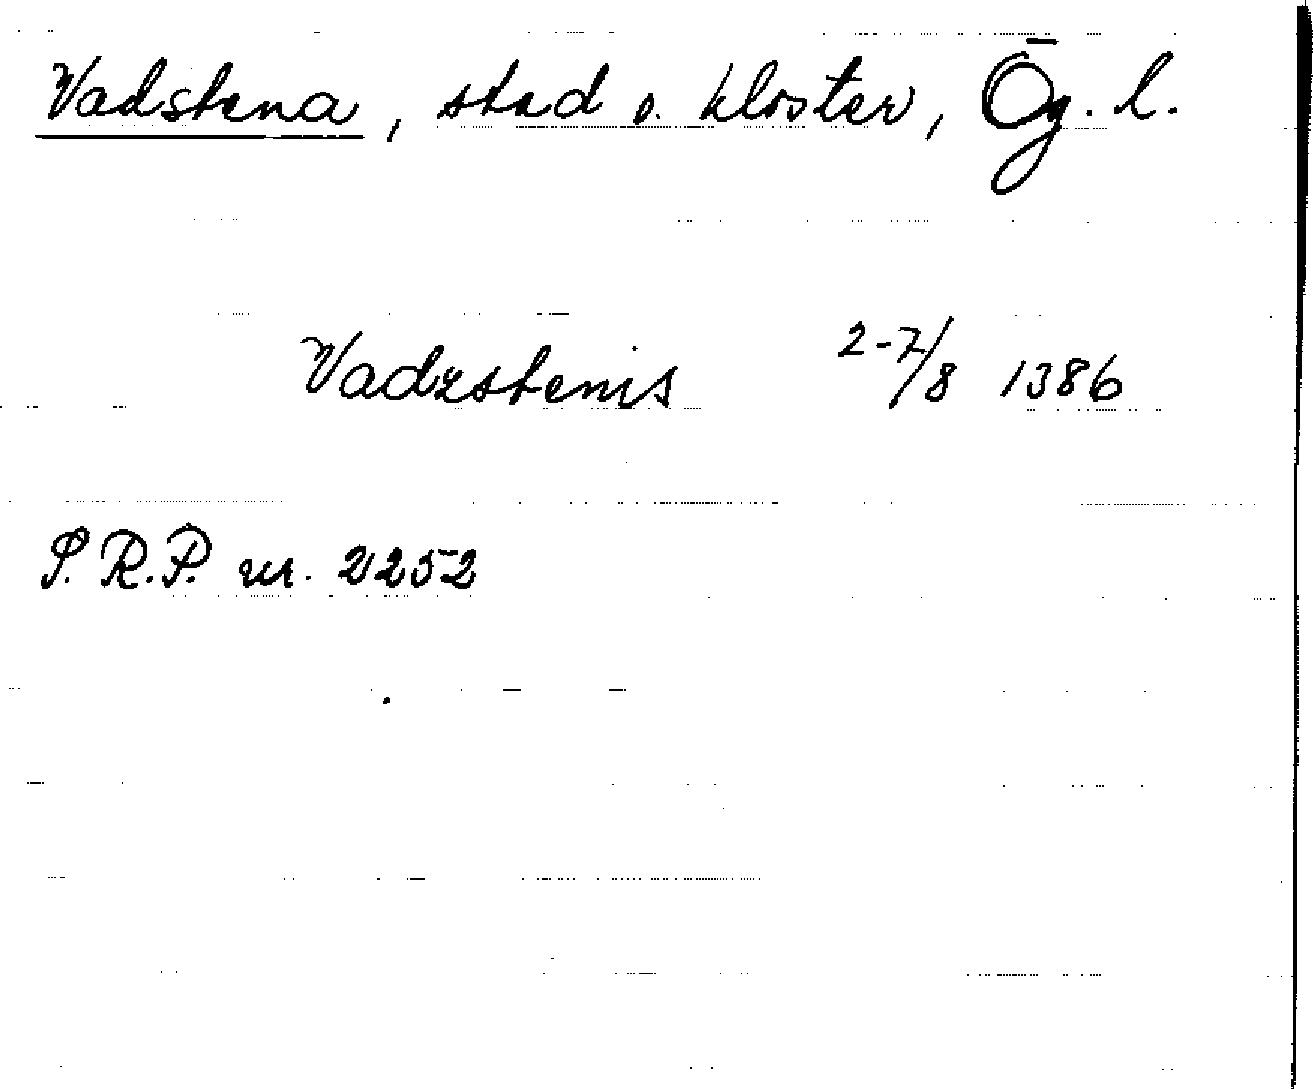 Vadstena, stad o. kloster, Ög. l.
Vadzstenis 2-7/8 1386
S.R.P. nr. 2252